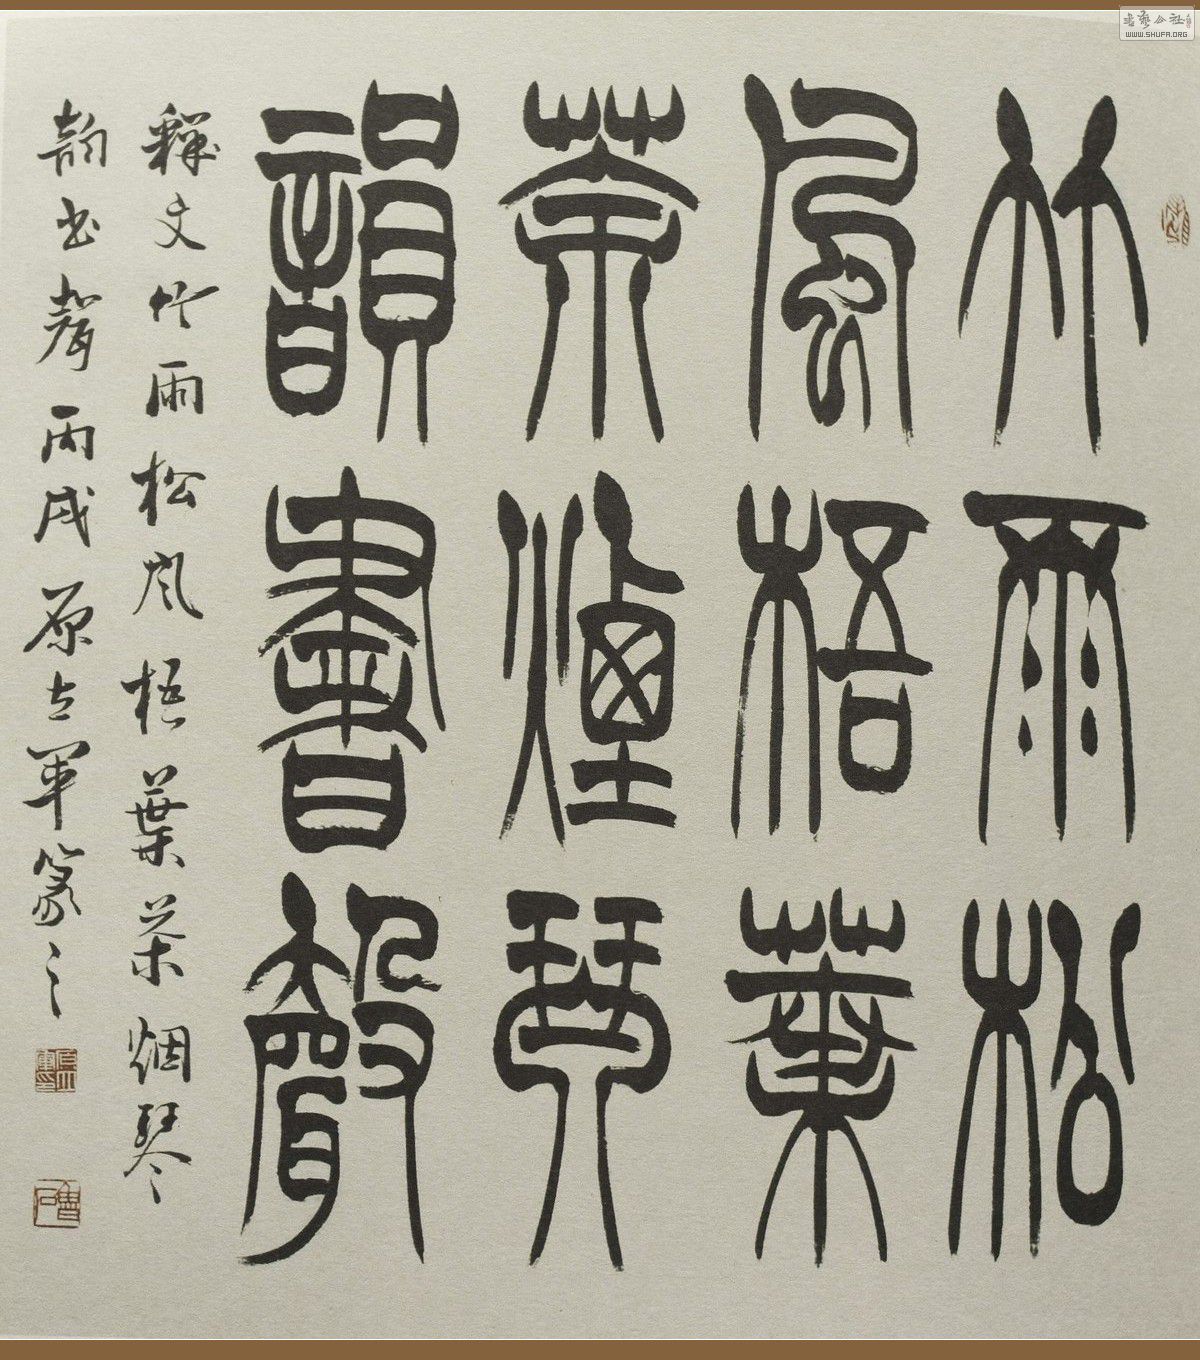 竹雨松
風梧葉
茶煙琴
韻書聲
釋文竹雨松風梧葉茶烟琴
韵书聲丙戌原立军篆之
书艺公社
WWW.SHUFA.ORG